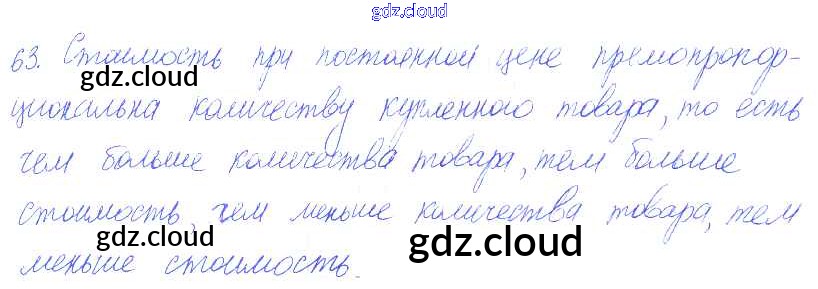 gdz.cloud
63. Стоимость при постоянной цене прямопропор-
gdz.cloud
циональна количеству купленного товара, то есть
чем больше количества товара, тем больше
стоимость, чем меньше количества товара, тем
gdz.cloud gdz.cloud
меньше стоимость.